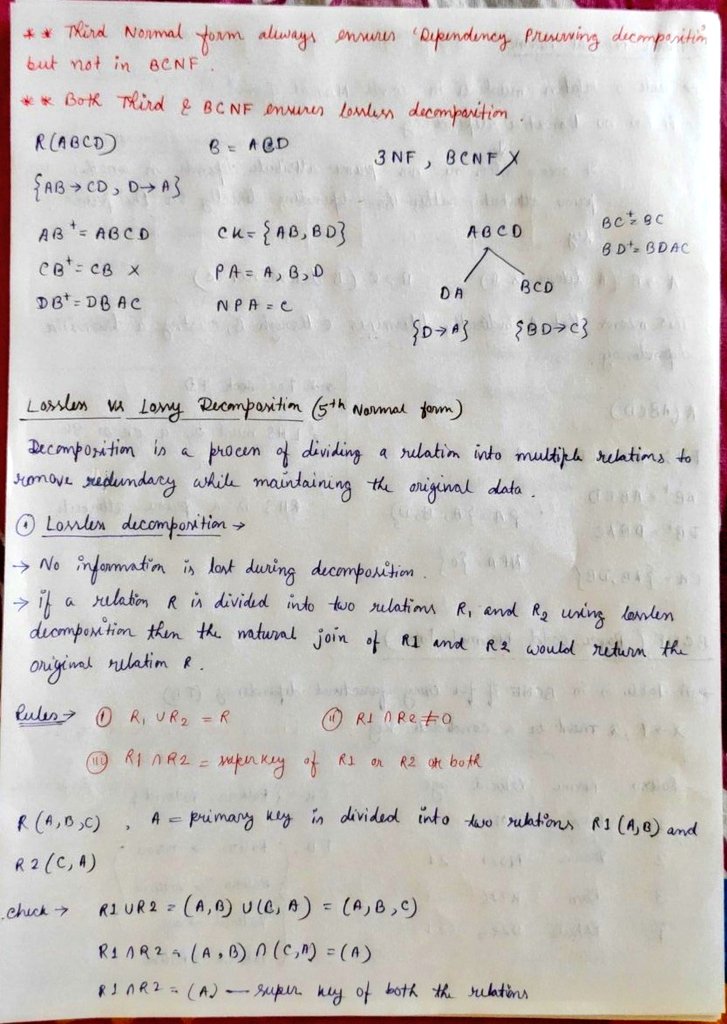 ** Third Normal form always ensures 'Dependency Preserving decomposition
but not in BCNF.
** Both Third & BCNF ensures lossless decomposition.
R(ABCD) B = ACD 3NF, BCNF X
{AB → CD, D → A}
AB+ = ABCD CK = {AB, BD} ABCD BC+ = BC
CB+ = CB X PA = A, B, D BD+ = BDAC
DB+ = DBAC NPA = C DA BCD
{D→A} {BD→C}
Lossless vs Lossy Decomposition (5th Normal form)
Decomposition is a process of dividing a relation into multiple relations to
remove redundacy while maintaining the original data.
① Lossless decomposition →
→ No information is lost during decomposition.
→ if a relation R is divided into two relations R1 and R2 using lossless
decomposition then the natural join of R1 and R2 would return the
original relation R.
Rules → ⓘ R1 ∪ R2 = R ⓘⓘ R1 ∩ R2 ≠ 0
ⓘⓘⓘ R1 ∩ R2 = super key of R1 or R2 or both
R (A, B, C) , A = primary key is divided into two relations R1 (A, B) and
R2 (C, A)
check → R1 ∪ R2 = (A, B) ∪ (C, A) = (A, B, C)
R1 ∩ R2 = (A, B) ∩ (C, A) = (A)
R1 ∩ R2 = (A) — super key of both the relations